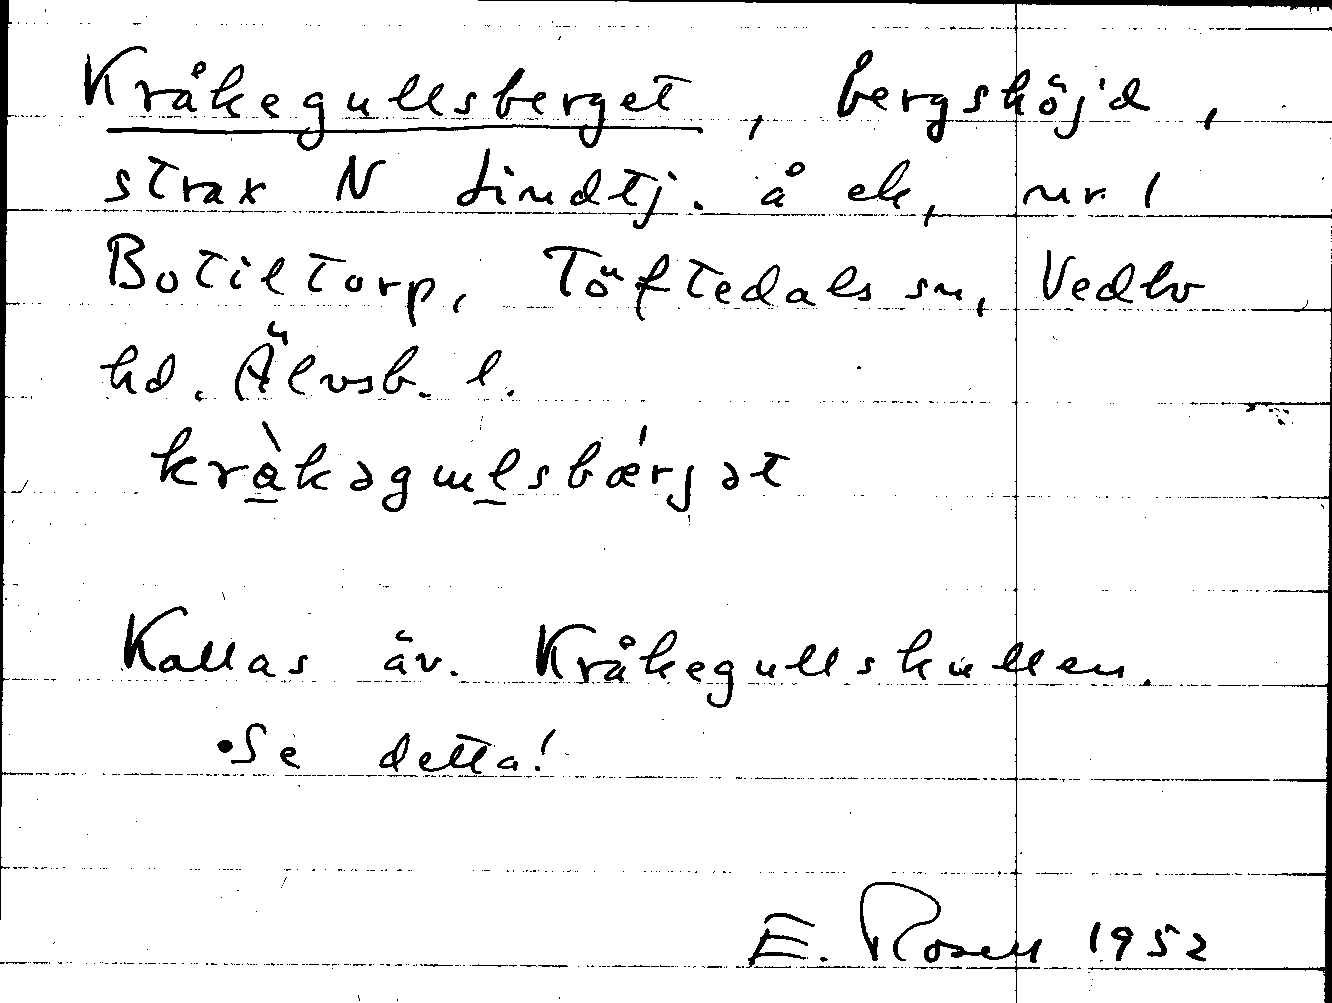 Kråkegullsberget, bergshöjd,
strax N Lindtj. å ek, nr 1
Botiltorp, Töftedals sn, Vedbo
hd. Älvsb. l.
kràkəgɯlsbǽrjət
Kallas äv. Kråkegullskullen.
•Se detta!
E. Rosell 1952